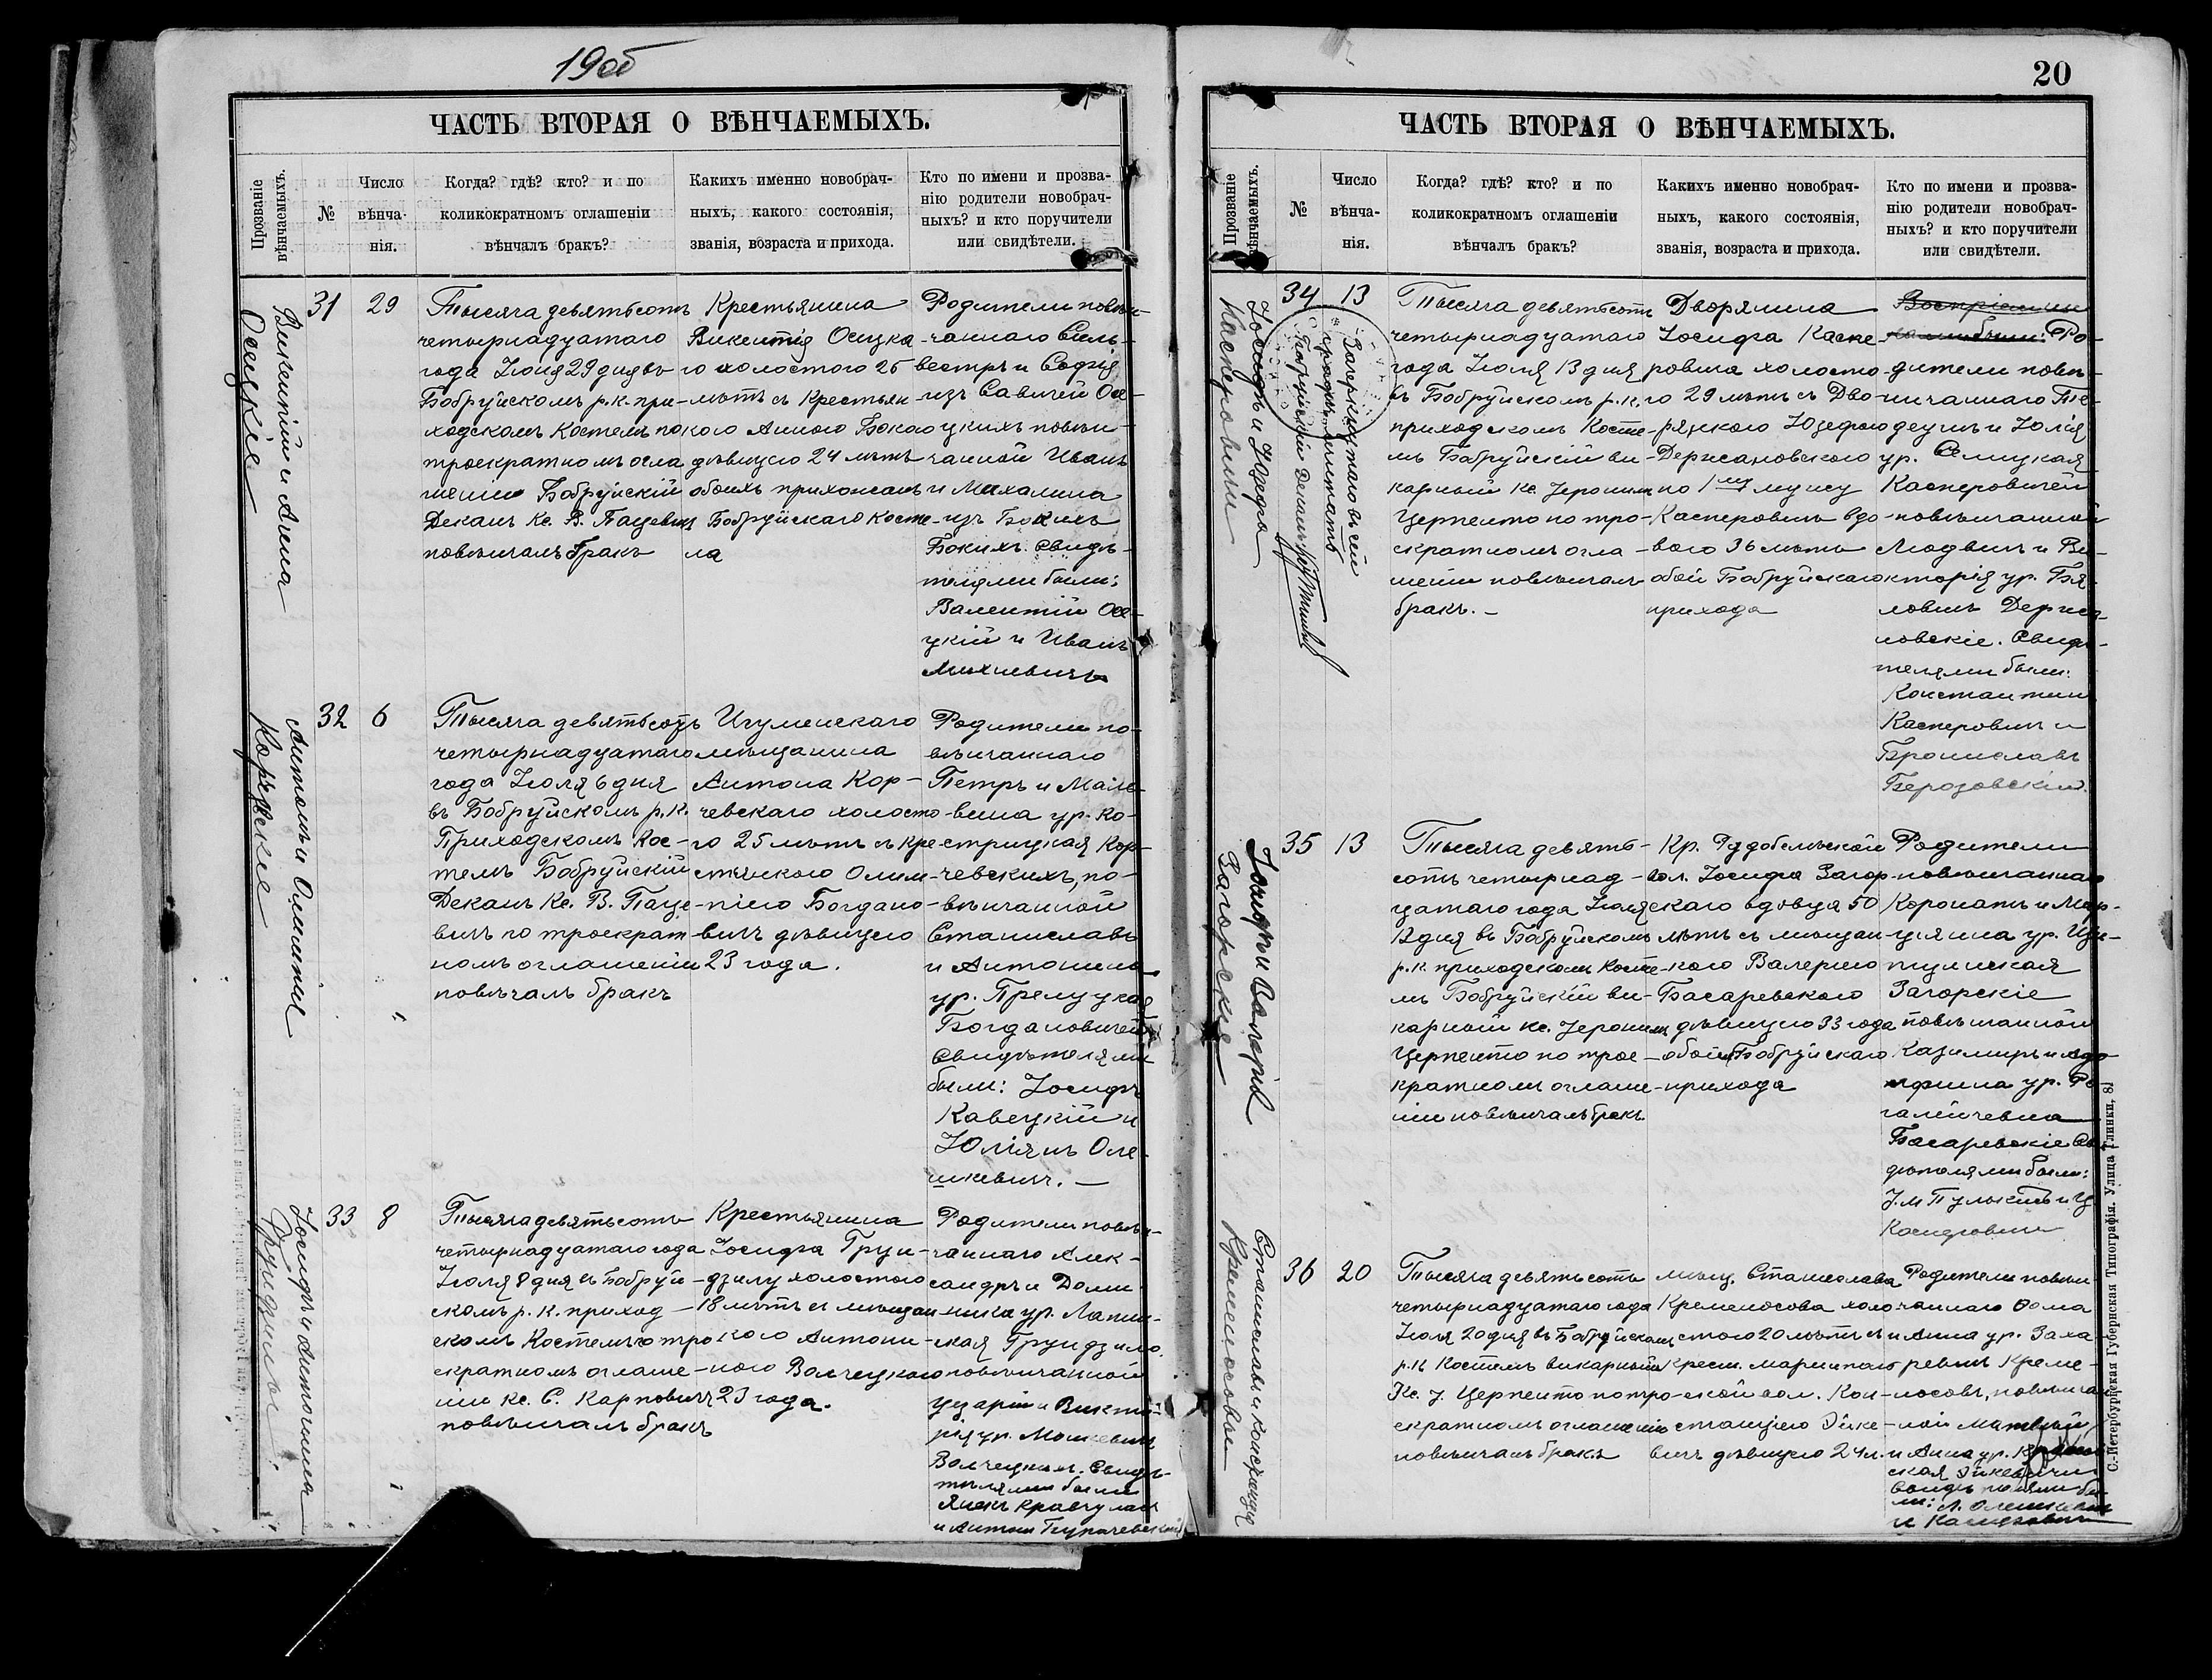 19об
ЧАСТЬ ВТОРАЯ О ВѢНЧАЕМЫХЪ.
Прозваніе вѣнчаемыхъ.
№
Число вѣнча-нія.
Когда? гдѣ? кто? и по
коликократномъ оглашеніи
вѣнчалъ бракъ?
Какихъ именно новобрач-
ныхъ, какого состоянія,
званія, возраста и прихода.
Кто по имени и прозва-
нію родители новобрач-
ныхъ? и кто поручители
или свидѣтели.
Викентій и Анна
Осецкіе
31
29
Тысяча девятьсотъ
четырнадцатаго
года Іюня 29 дня въ
Бобруйскомъ р.к. при-
ходскомъ Костелѣ по
троекратномъ огла
шеніи Бобруйскій
Деканъ Кс. В. Пацевичъ
повѣнчалъ бракъ
Крестьянина
Викентія Осецка-
го холостого 25
лѣтъ съ Крестьян-
кою Анною Бокою
дѣвицею 24 лѣтъ
обоихъ прихожанъ
Бобруйскаго Косте-
ла
Родители повѣн-
чаннаго Силь-
вестръ и Софія
изъ Савичей Осе-
цкихъ повѣн-
чанной Иванъ
и Михалина
изъ Бокихъ
Бокихъ. Свидѣ-
телями были:
Валентій Осе-
цкій и Иванъ
Михневичъ
Антонъ и Олимпія
Корчевскіе
32
6
Тысяча девятьсотъ
четырнадцатаго
года Іюля 6 дня
въ Бобруйскомъ р.к.
Приходскомъ Кос-
телѣ Бобруйскій
Деканъ Кс. В. Паце-
вичъ по троекрат
номъ оглашеніи
повѣчалъ бракъ
Игуменскаго
мѣщанина
Антона Кор-
чевскаго холосто-
го 25 лѣтъ съ Кре-
стянкою Олим-
піею Богдано-
вичъ дѣвицею
23 года.
Родители по-
вѣнчаннаго
Петръ и Мале-
вина ур. Ко-
стрицкая Кор-
чевскихъ, по-
вѣнчанной
Станиславъ
и Антонина
ур. Прелуцкая
Богдановичей
Свидѣтелями
были: Іосифъ
Кавецкій и
Юліянъ Оле-
шкевичъ. —
Іосифъ и Антонина
33
8
Тысяча девятьсотъ
четырнадцатаго года
Іюля 8 дня въ Бобруй-
скомъ р. к. приход-
скомъ Костелѣ по тро
екратномъ оглаше-
ніи Кс. С. Карповичъ
повѣнчалъ бракъ
Крестьянина
Іосифа Грун-
дзилу холостого
18 лѣтъ съ мѣщан
кою Антони-
ною Волчецкою
23 года.
Родители повѣн-
чаннаго Алек-
сандръ и Доми-
ника ур. Лапин-
ская Грундзило,
повѣнчанной
Цезарій и Викто-
рія ур. Мошкевичъ
Волчецкихъ. Свидѣ-
телями были
Янекъ Кравчукъ
и Антонъ
20
ЧАСТЬ ВТОРАЯ О ВѢНЧАЕМЫХЪ.
Прозваніе вѣнчаемыхъ.
№
Число вѣнча-нія.
Когда? гдѣ? кто? и по
коликократномъ оглашеніи
вѣнчалъ бракъ?
Какихъ именно новобрач-
ныхъ, какого состоянія,
званія, возраста и прихода.
Кто по имени и прозва-
нію родители новобрач-
ныхъ? и кто поручители
или свидѣтели.
Каспровичи
34
13
Зачеркнутаго въ сей
графѣ не читать
Бобруйскій Деканъ
Тысяча девятьсотъ
четырнадцатаго
года Іюля 13 дня
въ Бобруйскомъ р.к.
приходскомъ Косте-
лѣ Бобруйскій ви-
карный Кс. Іеронимъ
Церпенто по тро-
екратномъ огла-
шеніи повѣнчалъ
бракъ. —
Дворянина
Іосифа Каспе-
ровича холосто-
го 29 лѣтъ съ Дво-
рянкою Юзефою
Держановскою
по 1му мужу
Касперовичъ вдо-
вою 36 лѣтъ
обои Бобруйскаго
прихода
Воспріемни
ками были: Ро-
дители повѣ-
нчаннаго Те-
деушъ и Юлія
ур. Селицкая
Касперовичей
повѣнчанной
Людвигъ и Ви-
кторія ур. Бя-
ловичъ Держа-
новскіе. Свидѣ-
телями были:
Константинъ
Касперовичъ и
Брониславъ
Березовскій.
Іосифъ и Валерія
Загорскіе
35
13
Тысяча девять-
сотъ четырнад-
цатаго года Іюля
13 дня въ Бобруйскомъ
р.к. приходскомъ Косте-
лѣ Бобруйскій ви-
карный Кс. Іеронимъ
Церпенто по трое-
кратномъ оглаше-
ніи повѣнчалъ бракъ
Кр. Рудобельской
вол. Іосифа Загор-
скаго вдовца 50
лѣтъ съ мѣщан-
кою Валеріею
Басаревскою
дѣвицею 33 года
обоихъ Бобруйскаго
прихода
Родители
повѣнчаннаго
Коронатъ и Мар-
цияна ур.
Загорскіе
повѣнчанной
Казимиръ и Адо-
льфина ур. Ро
галевчевна
Басаревскіе Сви
дѣтелями были:
Станиславъ и Констанція
Кременосовы
36
20
Тысяча девятьсотъ
четырнадцатаго года
Іюля 20 дня въ Бобруйскомъ
р.к Костелѣ викарный
Кс. І. Церпенто по тро-
екратномъ оглашеніи
повѣнчалъ бракъ
мѣщ. Станислава
Кременосова холо
стого 20 лѣтъ съ
крест. Маріинпаго
рской вол. Кон-
станціею Эйке-
вичъ дѣвицею 24 л.
Родители повѣн
чаннаго Фома
и Анна ур. Заха
ревичъ Креме-
носовъ, повѣнча
ной Матвѣй
и Анна ур.
Свидѣтелями бы-
ли: А. Олешкевичъ
С.-Петербургская Губернская Типографія. Улица Глинки, 8.